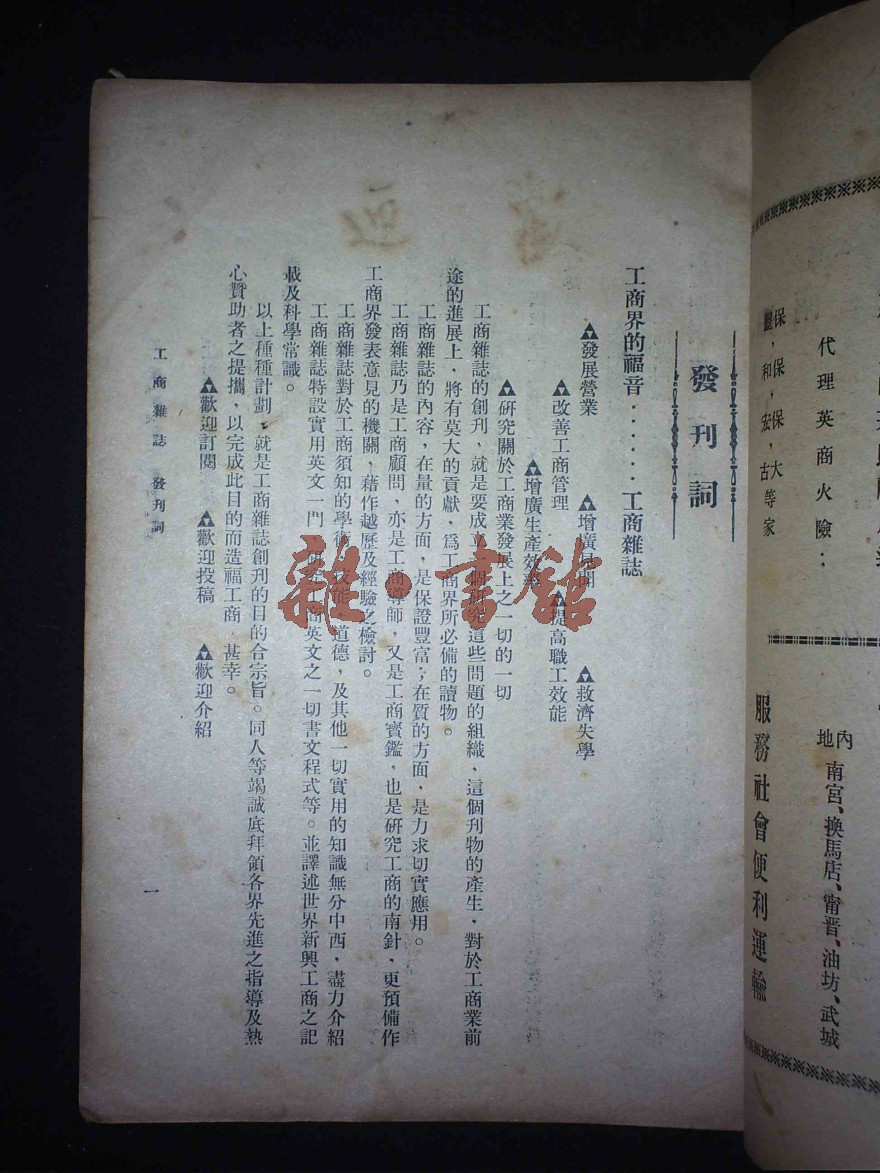 代理英商火險：
保保保大
豐，和，宏，古等家
內地 南宮、換馬店、甯晉、油坊、武城
服務社會便利運輸
發刊詞
工商界的福音．．．．．．工商雜誌
發展營業 增廣見聞 救濟失學
改善工商管理 提高職工效能
增廣生產效率
研究關於工商業發展上之一切的一切
工商雜誌的創刊，就是要成立一個研究這些問題的組織，這個刊物的產生，對於工商業前
途的進展上，將有莫大的貢獻，爲工商界所必備的讀物。
工商雜誌的內容，在量的方面，是保證豐富；在質的方面，是力求切實應用。
工商雜誌乃是工商顧問，亦是工商導師，又是工商寶鑑，也是研究工商的南針，更預備作
工商界發表意見的機關，藉作越歷及經驗之檢討。
工商雜誌對於工商須知的學術，技能，道德，及其他一切實用的知識無分中西，盡力介紹
工商雜誌特設實用英文一門，研究工商英文之一切書文程式等。並譯述世界新興工商之記
載及科學常識。
以上種種計劃，就是工商雜誌創刊的目的合宗旨。同人等竭誠底拜領各界先進之指導及熱
心贊助者之提攜，以完成此目的而造福工商，甚幸。
歡迎訂閱 歡迎投稿 歡迎介紹
工商雜誌 發刊詞
一
雜·書館